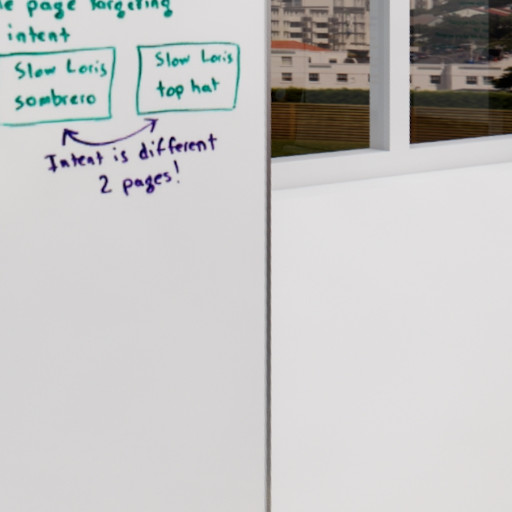 page Targeting
intent
Slow Loris
sombrero
Slow Loris
top hat
Intent is different
2 pages!